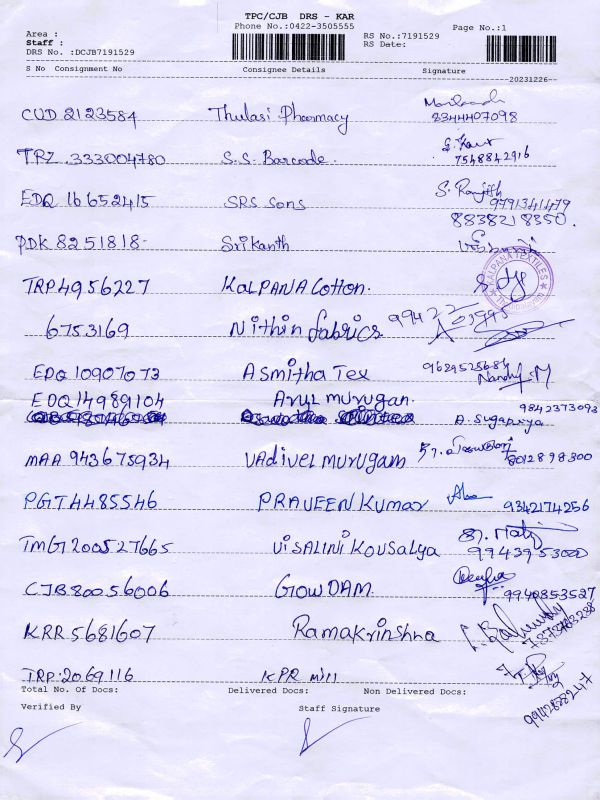 TPC/CJB DRS - KAR
Phone No.:0422-3505555
Page No.:1
Area :
Staff :
DRS No. :DCJB7191529
RS No.:7191529
RS Date:
S No Consignment No Consignee Details Signature
20231226
CUD 2123584 Thulasi Pharmacy
8344407098
TRZ 333004780 S.S. Barcode.
7548842916
EDQ 16652415 SRS Sons S. Ranjith
9791341479
8838218350.
PDK 8251818- Srikanth
TRP4956227 KALPANA Cotton.
KALPANA TEXTILES
6753169 Nithin fabrics
EDQ 10907073 ASmitha Tex
9689525684
Nandhy.M
EDQ 14989104 Arul murugan.
9842373093
A. Sugapriya
MAA 943675934 VAdivel murugam
8012898300
PGT4485546 PRAVEEN Kumar 9342174256
TMG1200527665 VISALINI Kousalya
9943953000
CJB80056006 GOWDAM.
9940853527
KRR 5681607 Ramakrinshna
TRP:2069116 KPR mill
9942888247
Total No. Of Docs: Delivered Docs: Non Delivered Docs:
Verified By Staff Signature